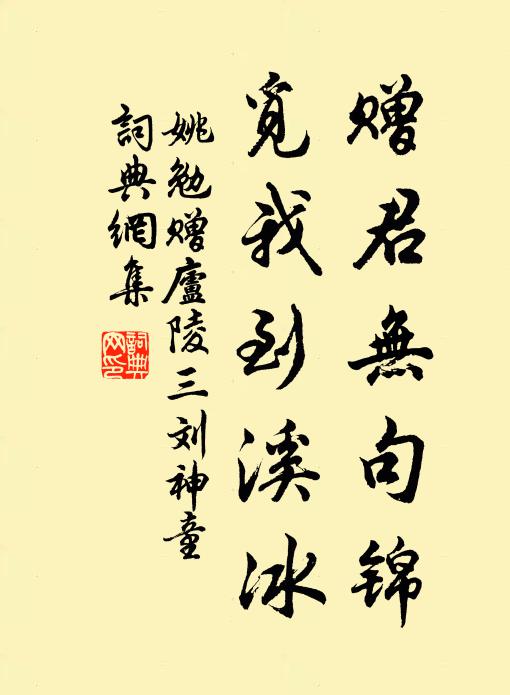 赠君無句锦
覓我到溪冰
姚勉赠廬陵三刘神童
詞典網集
詞典网印